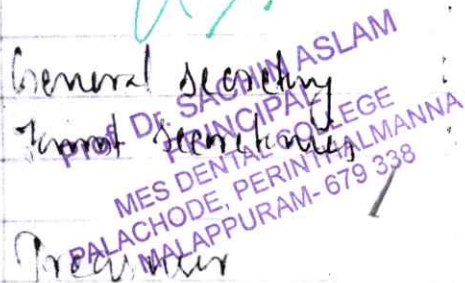 General secretary
Joint Secretaries
Treasurer
Prof Dr. SACHIN ASLAM
PRINCIPAL
MES DENTAL COLLEGE
PALACHODE, PERINTHALMANNA
MALAPPURAM- 679 338